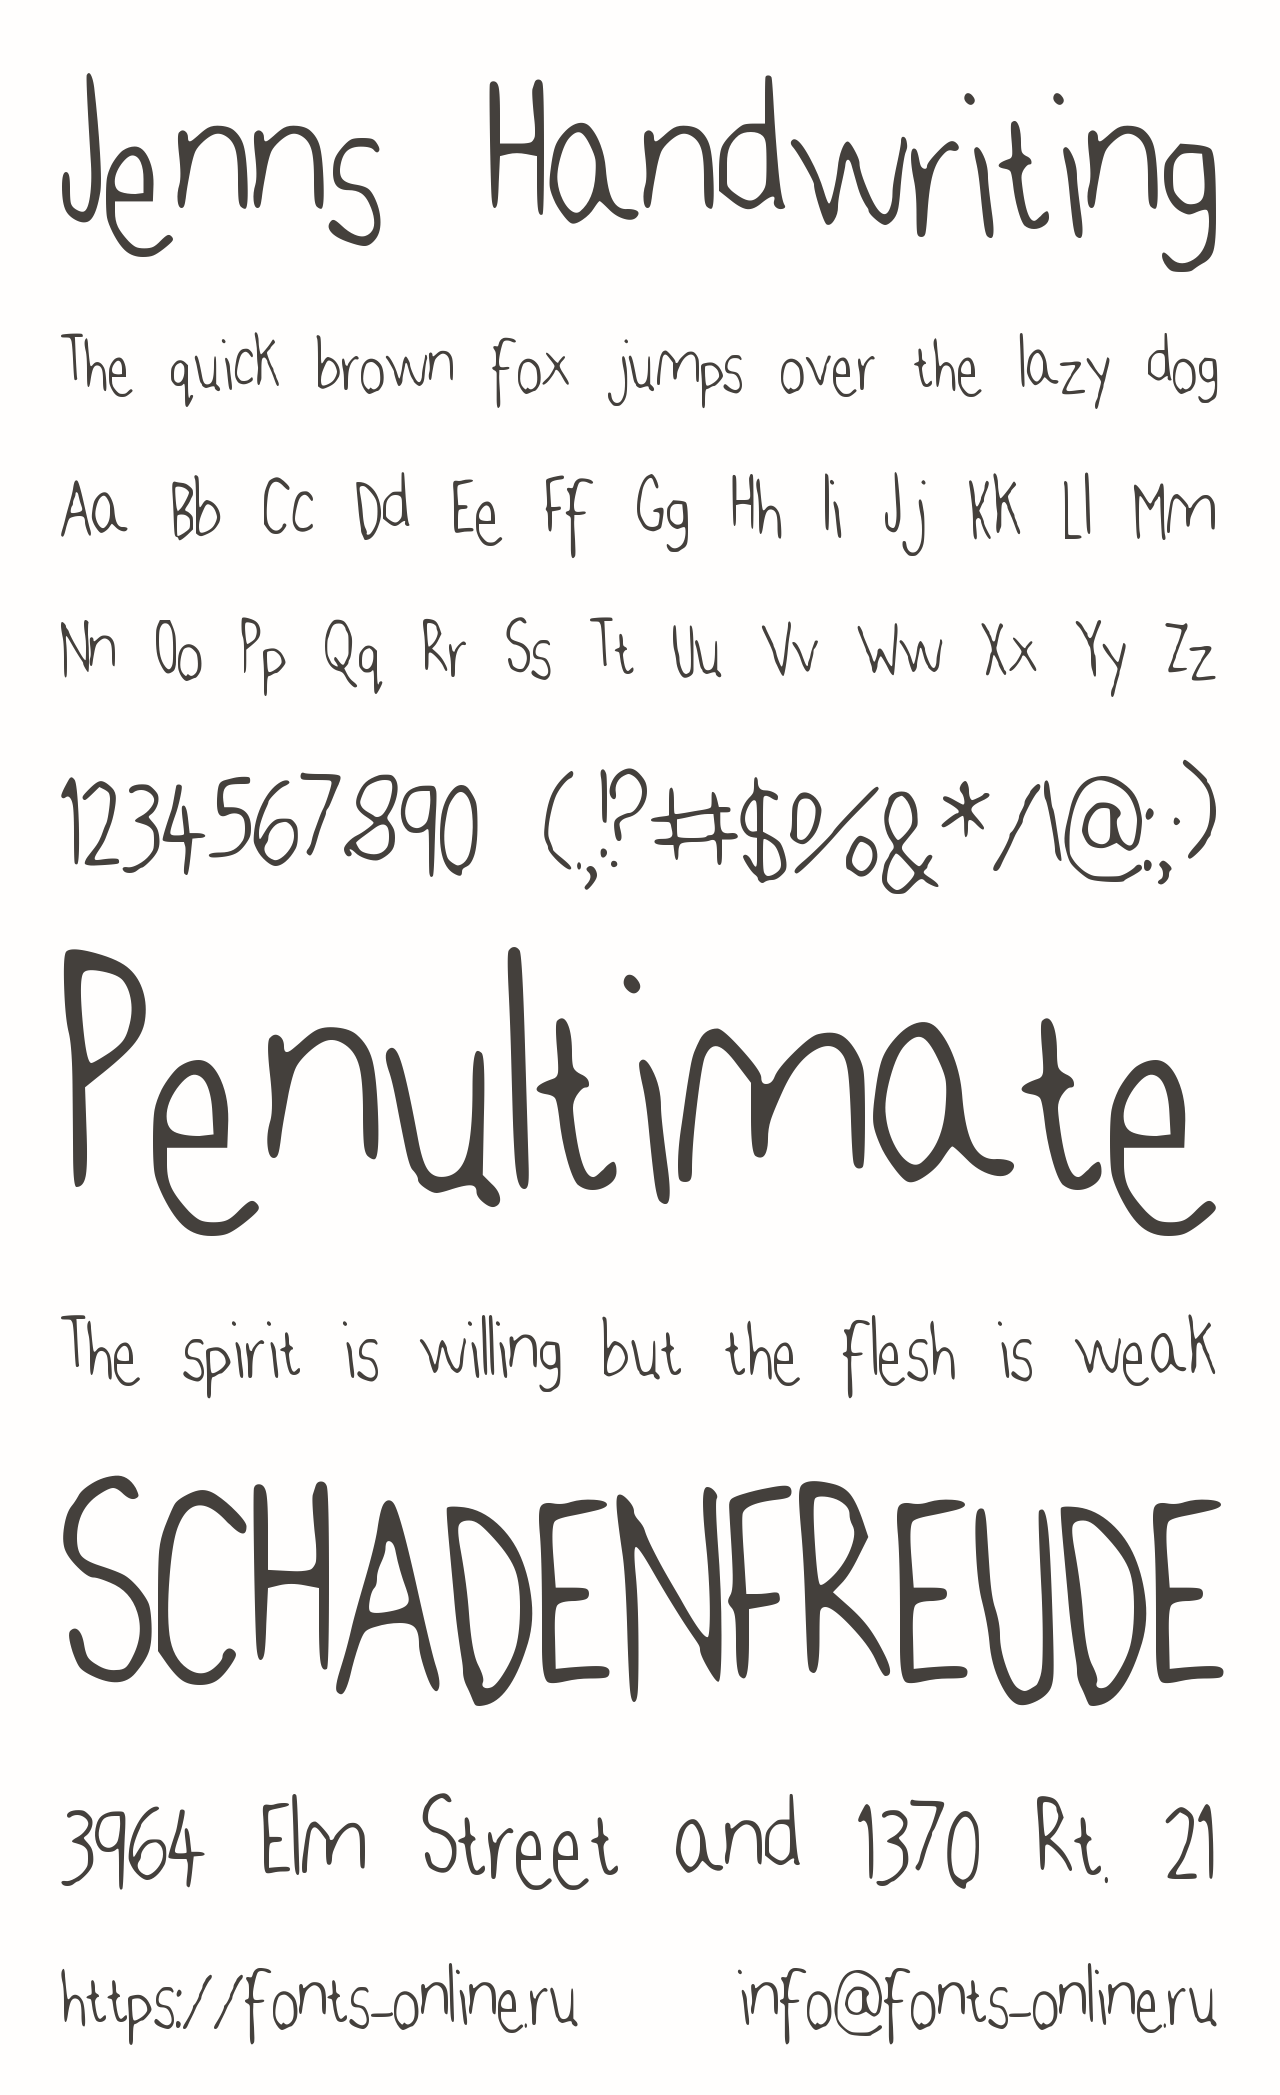 Jenns Handwriting
The quick brown fox jumps over the lazy dog
Aa Bb Cc Dd Ee Ff Gg Hh Ii Jj Kk Ll Mm
Nn Oo Pp Qq Rr Ss Tt Uu Vv Ww Xx Yy Zz
1234567890 (.,!?#$%&*/\@:;)
Penultimate
The spirit is willing but the flesh is weak
SCHADENFREUDE
3964 Elm Street and 1370 Rt. 21
https://fonts-online.ru info@fonts-online.ru